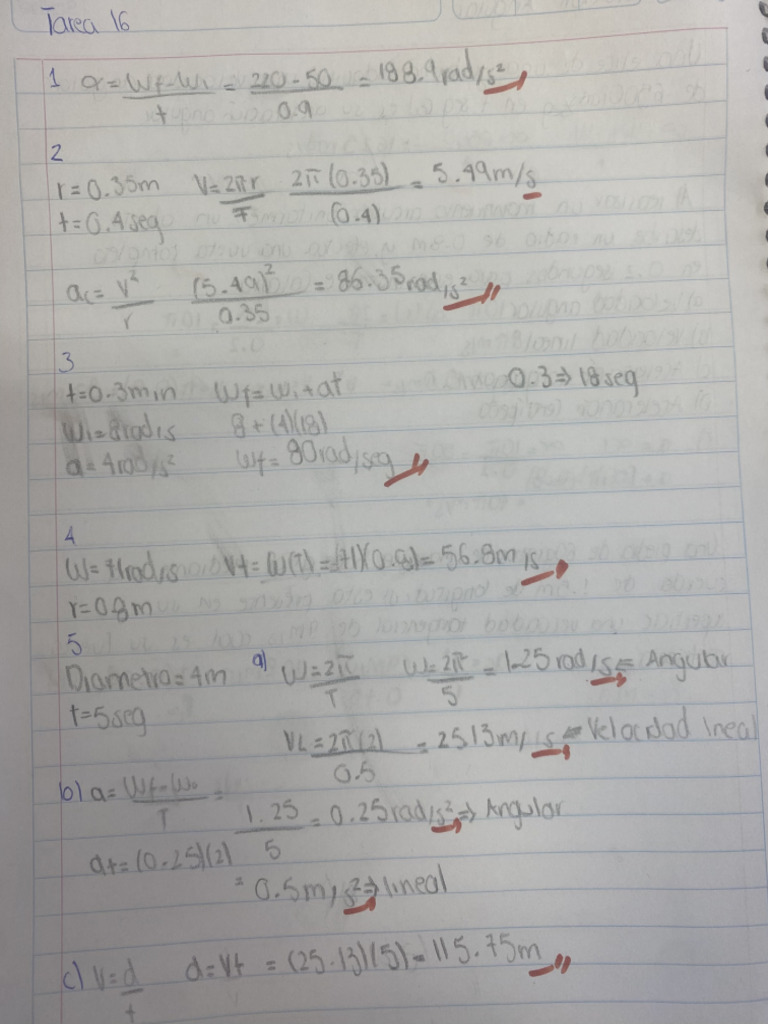 Tarea 16
1 α = Wf-Wi / t = 220-50 / 0.9 = 188.9 rad/s²
2
r = 0.35m V = 2πr / T 2π(0.35) / (0.4) = 5.49 m/s
t = 0.4 seg
ac = V² / r (5.49)² / 0.35 = 86.35 rad/s²
3
t = 0.3 min Wf = Wi + at 0.3 ⇒ 18 seg
Wi = 8 rad/s 8 + (4)(18)
a = 4 rad/s² Wf = 80 rad/seg
4
W = 71 rad/s Vt = W(r) = (71)(0.8) = 56.8 m/s
r = 0.8 m
5
Diametro = 4m a) W = 2π / T W = 2π / 5 = 1.25 rad/s ⇐ Angular
t = 5 seg
VL = 2π(2) / 0.5 = 25.13 m/s ⇐ Velocidad lineal
b) a = Wf-Wo / T = 1.25 / 5 = 0.25 rad/s² ⇒ Angular
at = (0.25)(2)
= 0.5 m/s² ⇒ lineal
c) V = d / t d = Vt = (25.13)(5) = 115.75 m